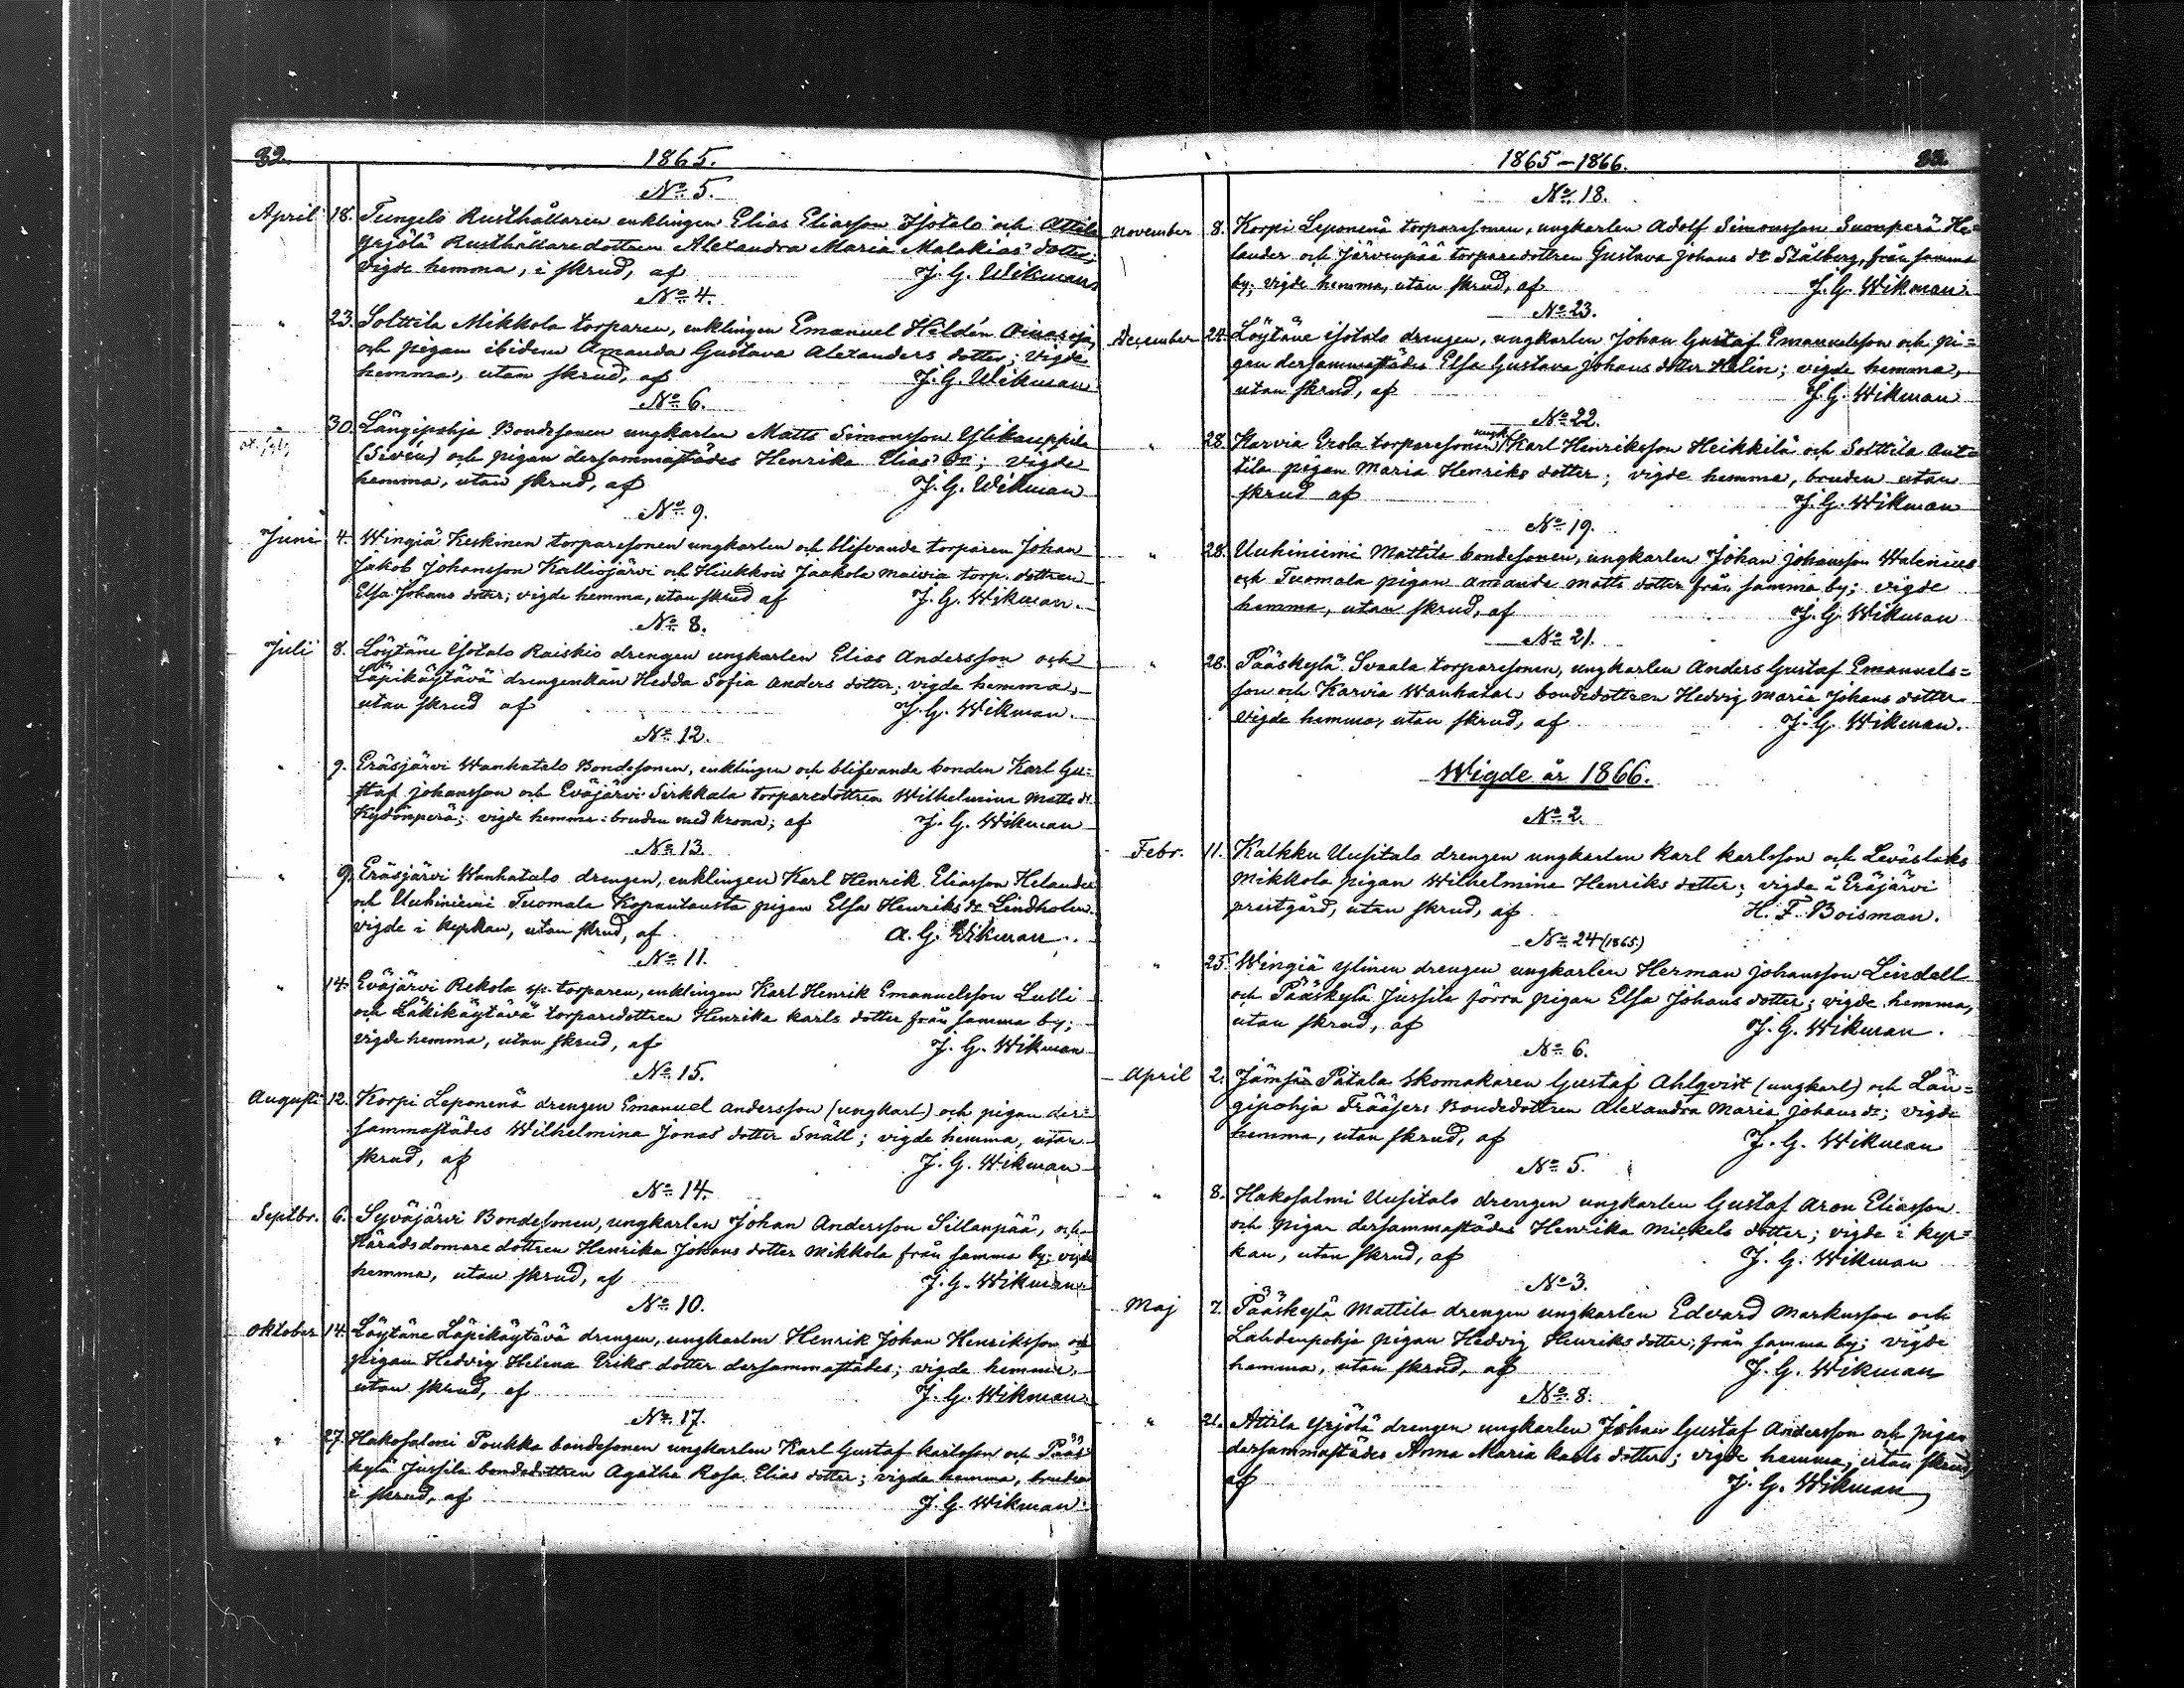 32.
1865.
No 5.
April 18. Tungelo Rusthållaren enklingen Elias Eliasson Isotalo och Attila
Yrjölä Rusthållaredottren Alexandra Maria Malakias dotter;
vigde hemma, i skrud, af J. G. Wikman
No 4.
" 23. Solttila Mikkola torparen, enklingen Emanuel Heldén
och pigan ibidem Amanda Gustava Alexanders dotter; vigde
hemma, utan skrud, af J. G. Wikman
No 6.
" 30. Längipohja Bondesonen ungkarlen Matts Simonsson Ylikauppila
(Sivén) och pigan dersammastädes Henrika Elias dr; vigde
hemma, utan skrud, af J. G. Wikman
No 9.
Juni 4. Wingiä Keskinen torparesonen ungkarlen och blifvande torparen Johan
Jakob Johansson Kalliojärvi och Hiukkois Jaakola torp. dottren
Elsa Johans dotter; vigde hemma, utan skrud af J. G. Wikman.
No 8.
Juli 8. Löytäne Isotalo Raiskio drengen ungkarlen Elias Andersson och
Läpikäytävä drengenkan Hedda Sofia Anders dotter; vigde hemma,
utan skrud af J. G. Wikman.
No 12.
" 9. Eräsjärvi Wanhatalo Bondesonen, enklingen och blifvande bonden Karl Gu=
staf Johansson och Eväjärvi Sirkkala torparedottren Wilhelmina Matts dr
Kydönperä; vigde hemma: bruden med krona; af J. G. Wikman
No 13.
" 9. Eräsjärvi Wanhatalo drengen, enklingen Karl Henrik Eliasson Helander
och Uuhiniemi Tuomala Kopantausta pigan Elsa Henriks dr Lindholm.
vigde i kyrkan, utan skrud, af A. G. Wikman.
No 11.
" 14. Eväjärvi Rekola sp. torparen, enklingen Karl Henrik Emanuelsson Lulli
och Läkikäytävä torparedottren Henrika Karls dotter från samma by;
vigde hemma, utan skrud, af J. G. Wikman
No 15.
Augusti 12. Korpi Leponenä drengen Emanuel Andersson (ungkarl) och pigan der=
sammastädes Wilhelmina Jonas dotter Snäll; vigde hemma, utan
skrud, af J. G. Wikman
No 14.
Septbr. 6. Syväjärvi Bondesonen, ungkarlen Johan Andersson Sillanpää, och
Häradsdomaredottren Henrika Johans dotter Mikkola från samma by; vigde
hemma, utan skrud, af J. G. Wikman
No 10.
Oktober 14. Löytäne Läpikäytävä drengen, ungkarlen Henrik Johan Henriksson och
pigan Hedvig Helena Eriks dotter dersammastädes; vigde hemma,
utan skrud, af J. G. Wikman
No 17.
" 27. Hakosalmi Poukka bondesonen ungkarlen Karl Gustaf Karlsson och Pääs
kylä Jussila bondedottren Agatha Rosa Elias dotter; vigde hemma, bruden
i skrud, af J. G. Wikman
1865-1866.
33.
No 18.
November 8. Korpi Leponenä torparesonen, ungkarlen Adolf Simonsson Suonperä He=
lander och Järvenpää torparedottren Gustava Johans dr Stålberg, från samma
by; vigde hemma, utan skrud, af J. G. Wikman.
No 23.
December 24. Löytäne Isotalo drengen, ungkarlen Johan Gustaf Emanuelsson och pi=
gan dersammastädes Elsa Gustava Johans dotter Helin; vigde hemma,
utan skrud, af J. G. Wikman
No 22.
" 28. Karvia Erola torparesonen ungk. Karl Henriksson Heikkilä och Solttila Ant=
tila pigan Maria Henriks dotter; vigde hemma, bruden utan
skrud af J. G. Wikman
No 19.
" 28. Uuhiniemi Mattila bondesonen, ungkarlen Johan Johansson Walenius
och Tuomala pigan Amanda Matts dotter från samma by; vigde
hemma, utan skrud, af J. G. Wikman
No 21.
" 26. Pääskylä Svaala torparesonen, ungkarlen Anders Gustaf Emanuels=
son och Karvia Wanhatalo bondedottren Hedvig Maria Johans dotter
vigde hemma, utan skrud, af J. G. Wikman.
Wigde år 1866.
No 2.
Febr. 11. Kalkku Uusitalo drengen ungkarlen Karl Karlsson och Leväslaks
Mikkola pigan Wilhelmina Henriks dotter; vigda å Eräjärvi
prestgård, utan skrud, af H. F. Boisman.
No 24 (1865)
" 25. Wingiä Ylinen drengen ungkarlen Herman Johansson Lindell
och Pääskylä Jussila förra pigan Elsa Johans dotter; vigde hemma,
utan skrud, af J. G. Wikman.
No 6.
April 2. Jämsä Patala Skomakaren Gustaf Ahlqvist (ungkarl) och Län=
gipohja Frääsers Bondedottren Alexandra Maria Johans dr; vigde
hemma, utan skrud, af J. G. Wikman
No 5.
" 8. Hakosalmi Uusitalo drengen ungkarlen Gustaf Aron Eliasson
och pigan dersammastädes Henrika Mickels dotter; vigde i kyr=
kan, utan skrud, af J. G. Wikman
No 3.
Maj 7. Pääskylä Mattila drengen ungkarlen Edvard Markusson och
Lahdenpohja pigan Hedvig Henriks dotter; från samma by; vigde
hemma, utan skrud, af J. G. Wikman
No 8.
" 21. Attila Yrjölä drengen ungkarlen Johan Gustaf Andersson och pigan
dersammastädes Anna Maria Karls dotter; vigde hemma, utan skrud,
af J. G. Wikman